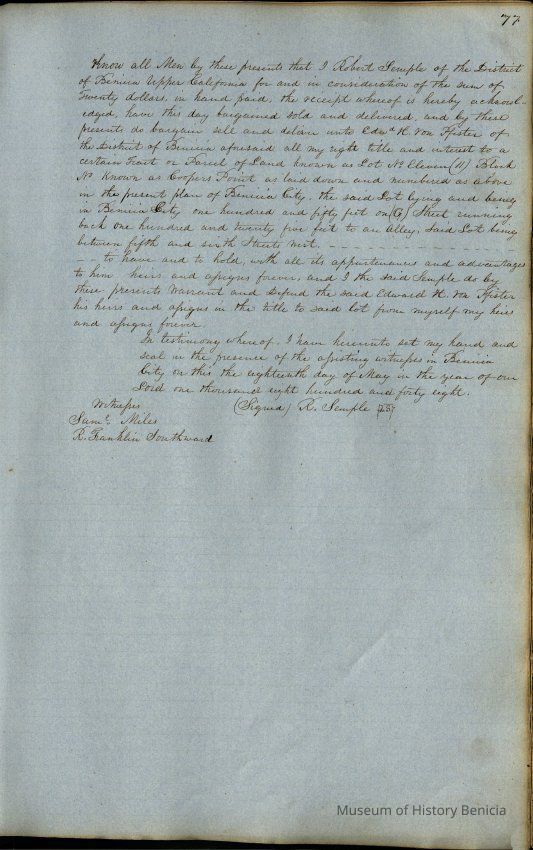 77
Know all Men by these presents that I Robert Semple of the District
of Benicia Upper California for and in consideration of the sum of
Twenty dollars, in hand paid, the receipt whereof is hereby acknowl-
edged, have this day bargained sold and delivered, and by these
presents do bargain sell and deliver unto Edwd H. Von Pfister of
the District of Benicia aforesaid all my right title and interest to a
certain Tract or Parcel of Land known as Lot No Eleven (11) Block
No Known as Coopers Point as laid down and numbered as above
in the present plan of Benicia City, the said Lot lying and being
in Benicia City one hundred and fifty feet on (G) Street running
back one hundred and twenty five feet to an Alley, said Lot being
between fifth and sixth Streets West.
to have and to hold, with all its appurtenances and advantages
to him heirs and assigns forever, and I the said Semple do by
these presents Warrant and Defend the said Edward H. Von Pfister
his heirs and assigns in the title to said lot from myself my heirs
and assigns forever.
In testimony whereof, I have hereunto set my hand and
seal in the presence of the attesting witness in Benicia
City on this the eighteenth day of May in the year of our
Lord one thousand eight hundred and forty eight.
Witness (Signed) R. Semple
Saml. Miles
R. Franklin Southward
Museum of History Benicia